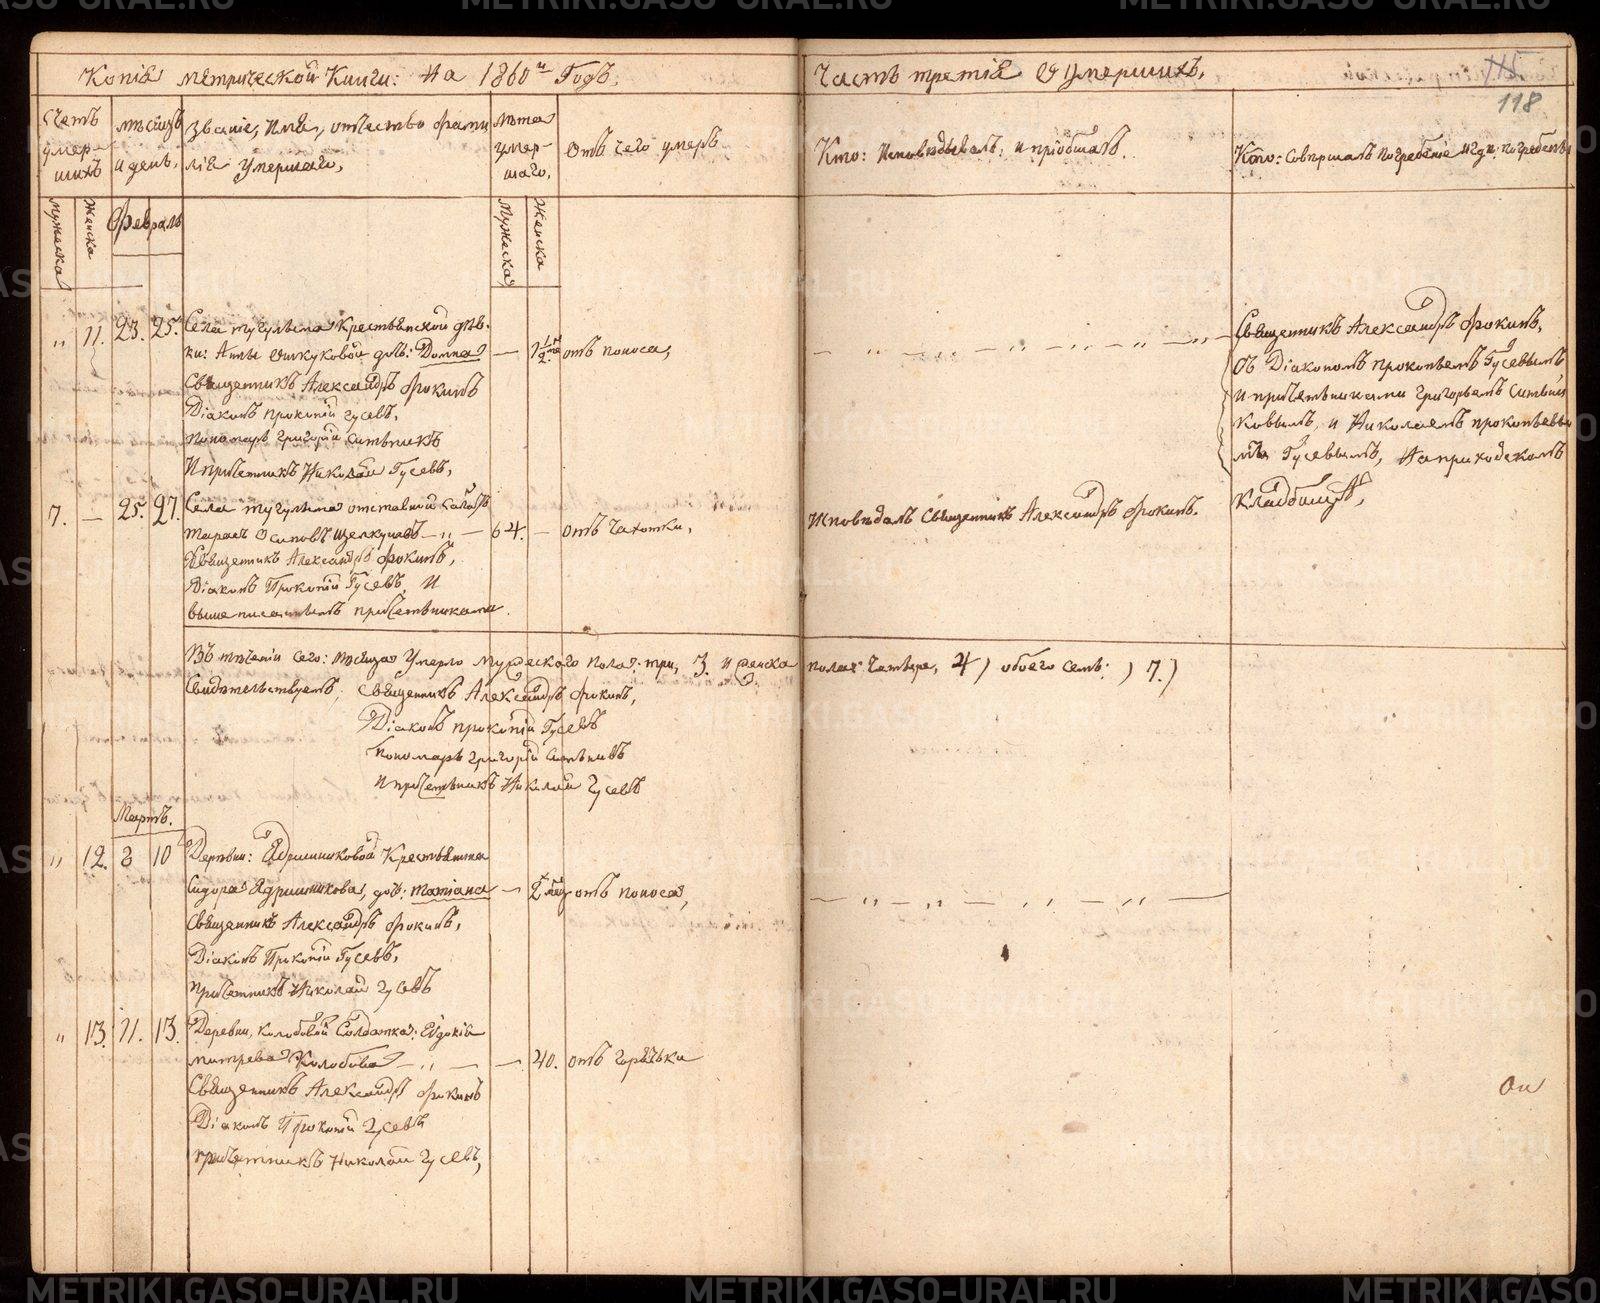 Копія метрической Книги: На 1860й Годъ.
Часть третія О Умершихъ.
115
118
Счетъ умер-шихъ
мѣсяцъ и день.
Званіе, Имя, отчество фами
лія Умершаго,
Лѣта умер-шаго.
Отъ чего умеръ
Кто: Исповѣдывалъ, и пріобщалъ.
Кто: Совершалъ погребеніе и гдѣ погребенъ
Мужеска Женска
Февраль
Мужеска Женска
" 11. 23. 25. Села тугулыма Крестьянской дѣв-
ки: Анны дочь: Домна — 1 1/2 отъ поноса,
Священникъ Александръ Фокинъ
Діаконъ прокопій гусевъ,
Пономарь григорій Ситниковъ
И причетникъ Николай Гусевъ,
Священникъ Александръ Фокинъ,
Съ Діакономъ прокопьемъ Гусевымъ
и причетниками григорьемъ Ситни
ковымъ, и Николаемъ прокопьевы
мъ Гусевымъ, На приходскомъ
Кладбищѣ,
7. — 25. 27. Села тугулыма отставной Салдатъ
Тарасъ Осиповъ Щелкуновъ — " — 64. — отъ чахотки,
Исповѣдалъ Священникъ Александръ Фокинъ.
Священникъ Александръ Фокинъ,
Діаконъ Прокопій Гусевъ И
выше писаннымъ причетниками.
Въ теченіи сего: мѣсяца Умерло мужескаго пола: три, 3. и женска пола: Четыре, 4) обоего семь: ) 7.)
Свидѣтельствуемъ, Священникъ Александръ Фокинъ,
Діаконъ прокопій Гусевъ
Пономарь григорій Ситниковъ
И причетникъ Николай Гусевъ
Мартъ.
" 12. 8 10 Деревни: Ядрышниковой Крестьянина
Сидора Ядрышникова, дочь: Татіана — 2 отъ поноса,
Священникъ Александръ Фокинъ,
Діаконъ Прокопій Гусевъ,
Причетникъ Николай Гусевъ
" 13. 11. 13. Деревни, Колобовой Солдатка: Евдокія
митрева Колобова — " — — 40. отъ горячьки
Священникъ Александръ Фокинъ
Діаконъ Прокопій Гусевъ
причетникъ Николай Гусевъ,
METRIKI.GASO-URAL.RU